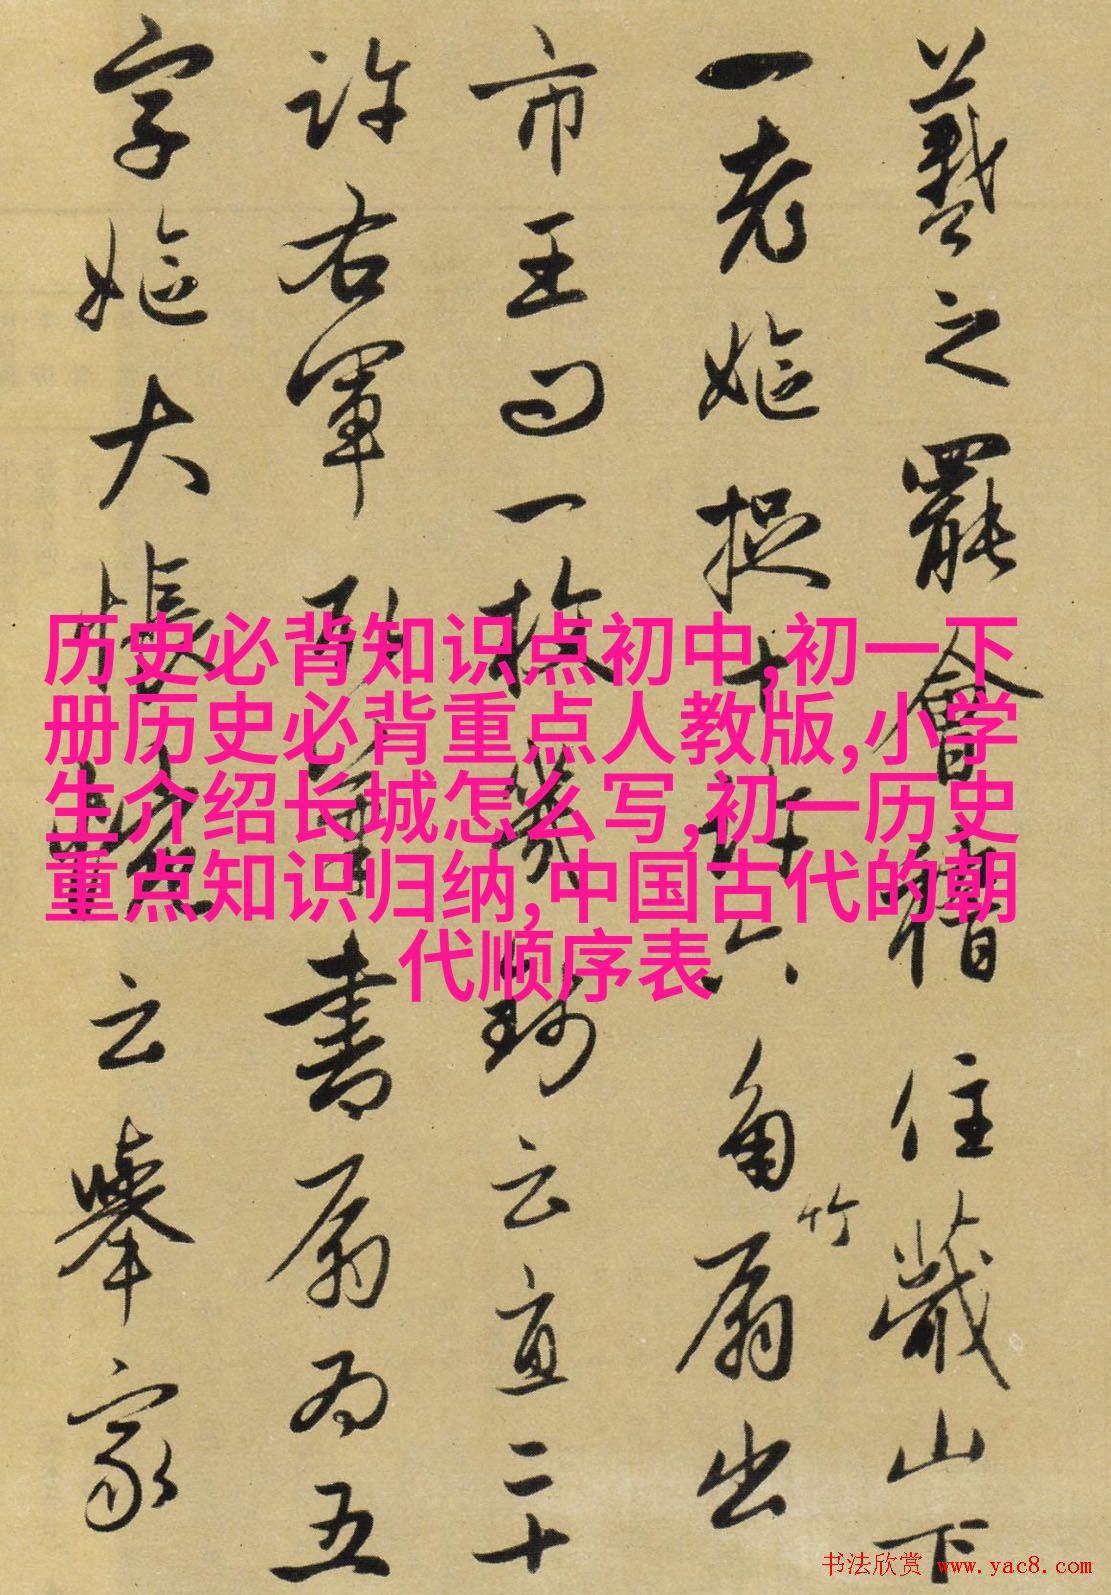 羲之罷會稽住蕺山下
一老嫗捉十許六角竹扇出
市王问一枚幾云直二十
許右軍取筆書扇为五
字嫗大悵惋云舉家
历史必背知识点初中,初一下
册历史必背重点人教版,小学
生介绍长城怎么写,初一历史
重点知识归纳,中国古代的朝
代顺序表
书法欣赏 www.yac8.com